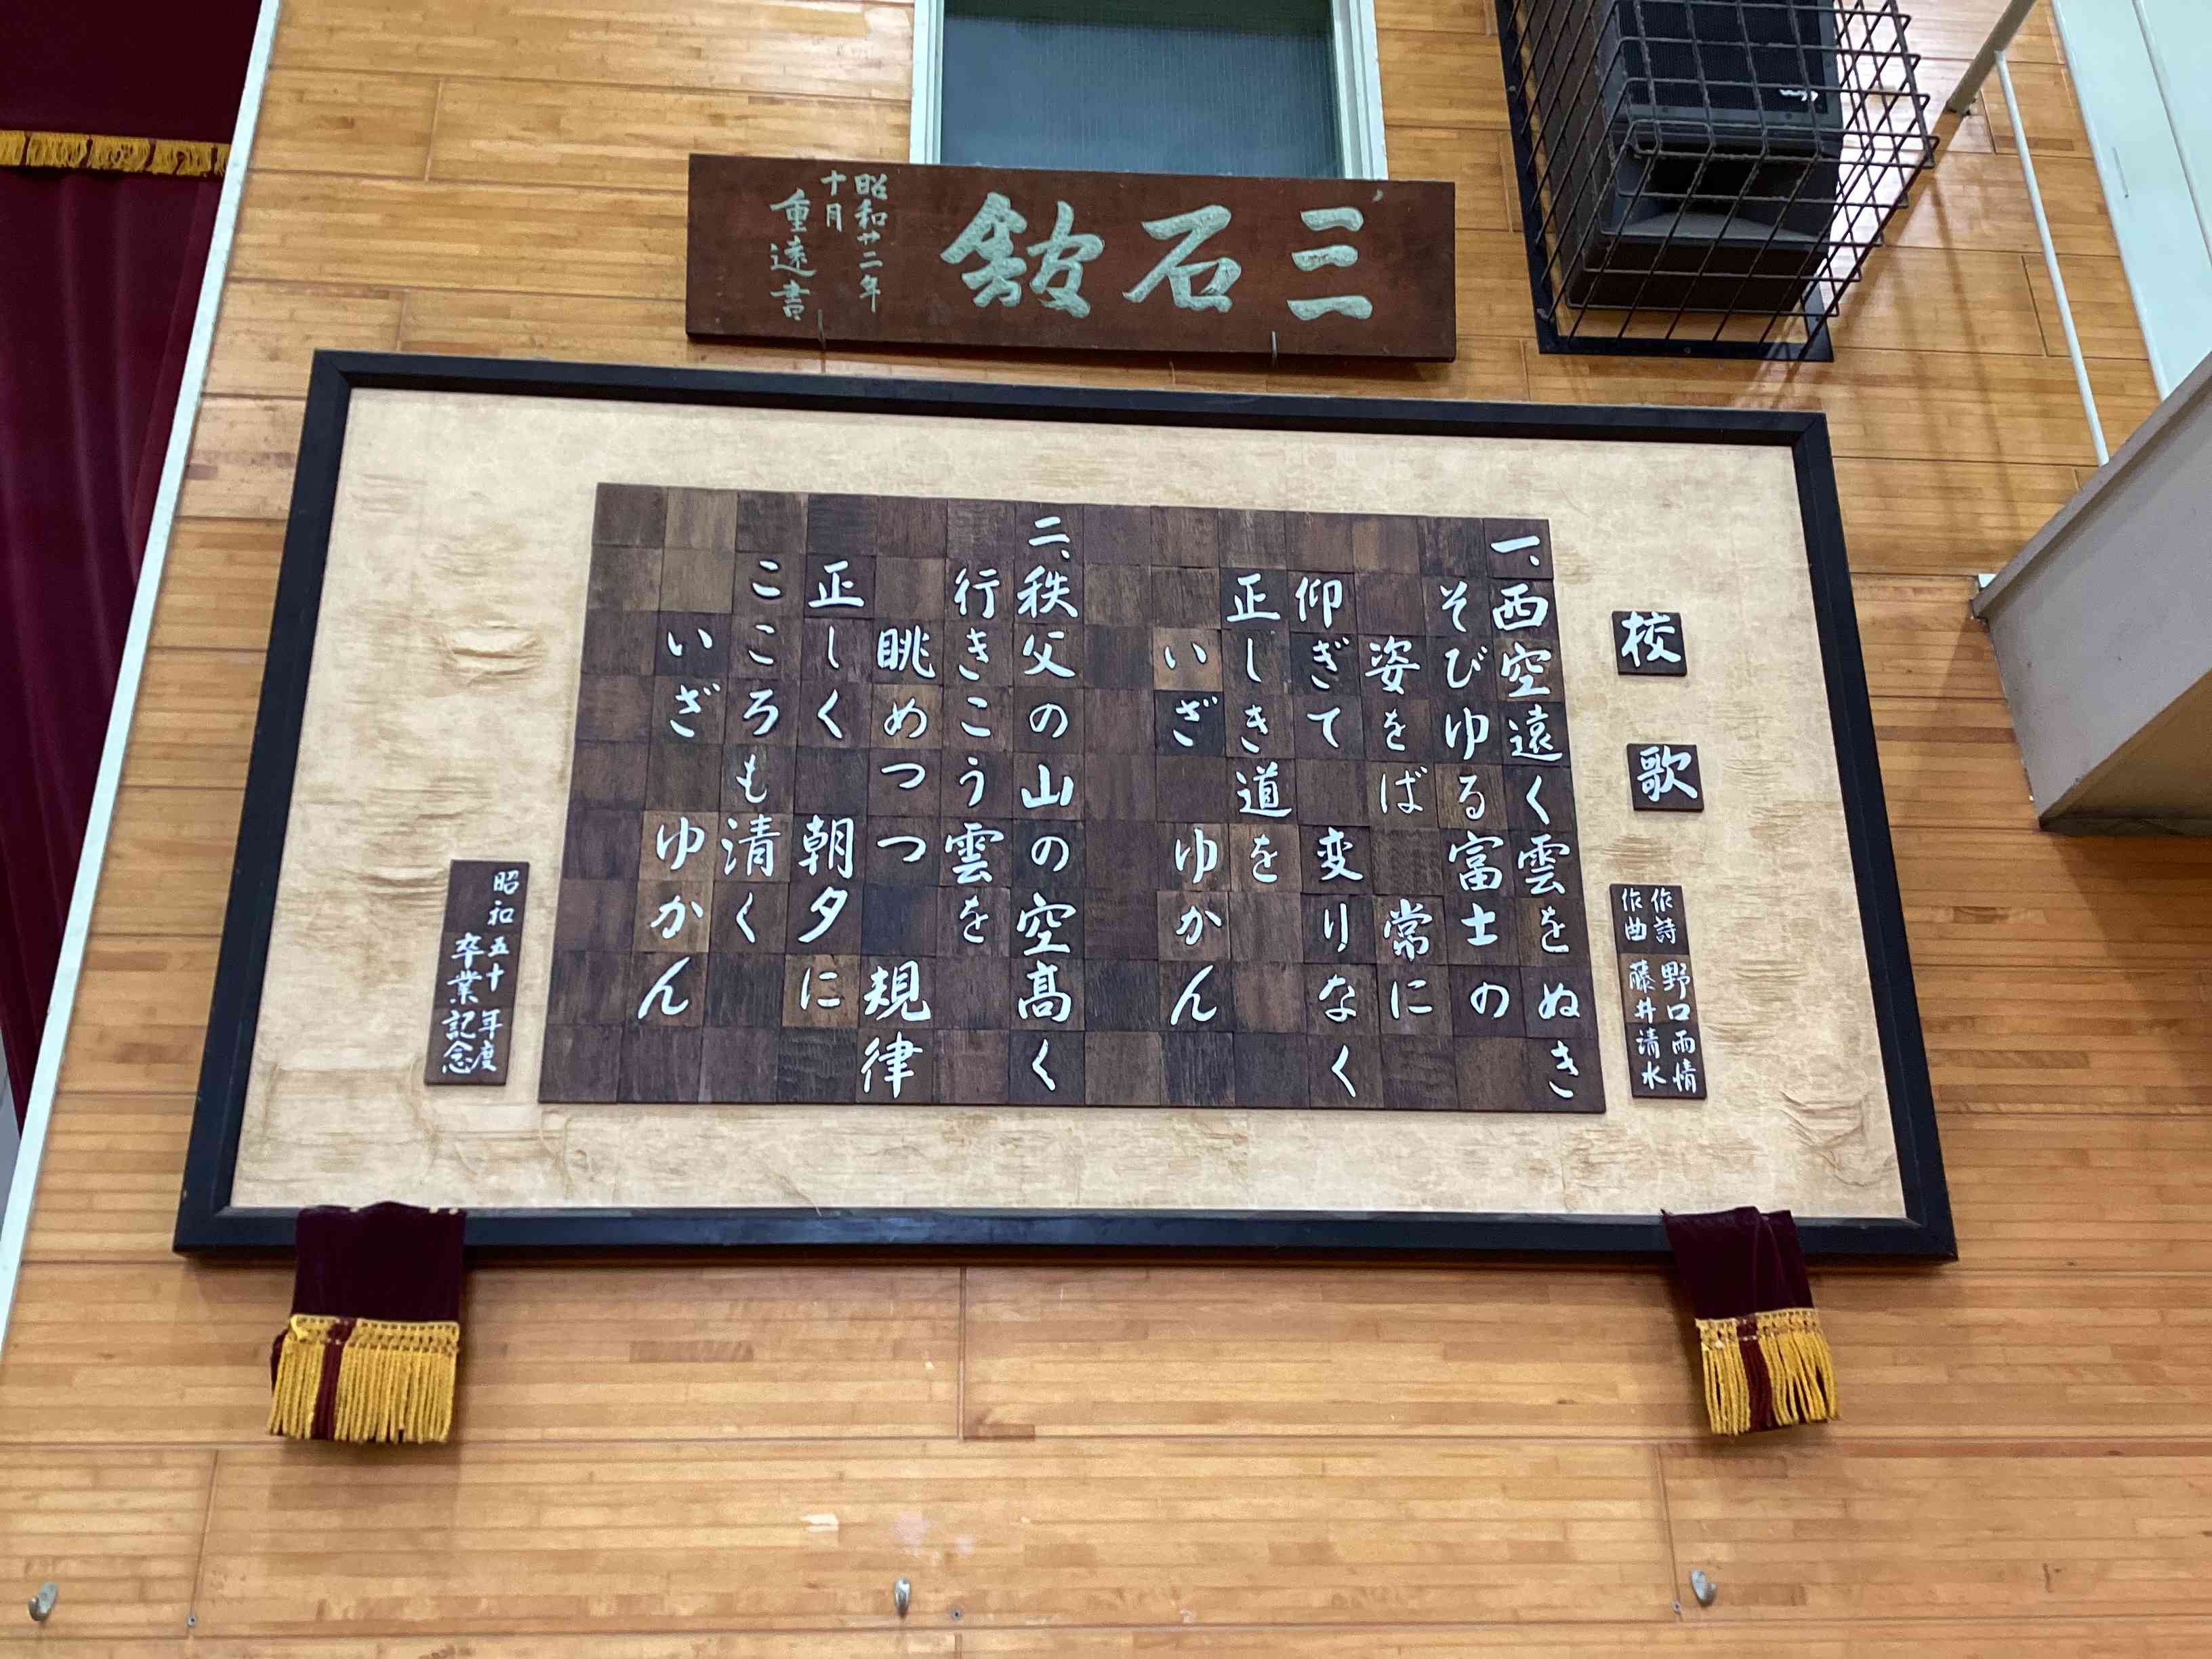 三石舘
昭和廿二年
十月
重遠書
校歌
作詩 野口雨情
作曲 藤井清水
一、西空遠く雲をぬき
そびゆる富士の
姿をば 常に
仰ぎて 変りなく
正しき道を
いざ ゆかん
二、秩父の山の空高く
行きこう雲を
眺めつつ 規律
正しく 朝夕に
こころも清く
いざ ゆかん
昭和五十年度
卒業記念